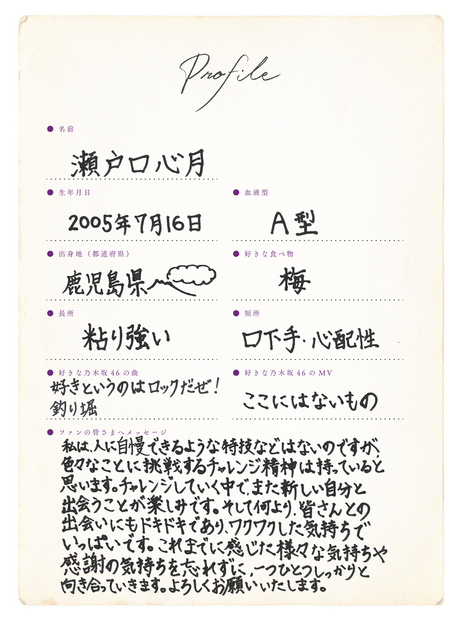 Profile
名前
瀬戸口心月
生年月日
2005年7月16日
血液型
A型
出身地（都道府県）
鹿児島県
好きな食べ物
梅
長所
粘り強い
短所
口下手・心配性
好きな乃木坂46の曲
好きというのはロックだぜ!
釣り堀
好きな乃木坂46のMV
ここにはないもの
ファンの皆さまへメッセージ
私は、人に自慢できるような特技などはないのですが、
色々なことに挑戦するチャレンジ精神は持っていると
思います。チャレンジしていく中で、また新しい自分と
出会うことが楽しみです。そして何より、皆さんとの
出会いにもドキドキであり、ワクワクした気持ちで
いっぱいです。これまでに感じた様々な気持ちや
感謝の気持ちを忘れずに、一つひとつしっかりと
向き合っていきます。よろしくお願いいたします。